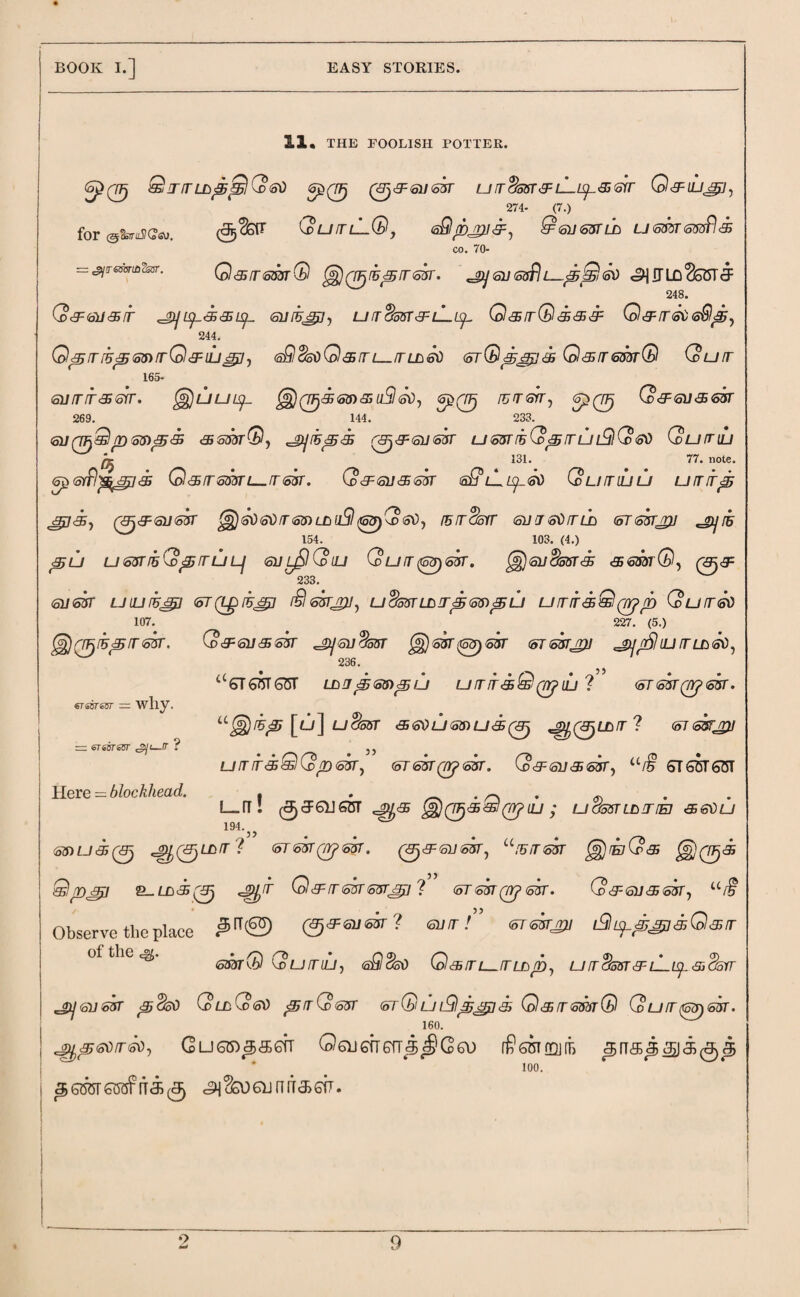 BOOK I.] EASY STORIES.
11. THE FOOLISH POTTER.
ஒரு கிராமத்திலே ஒரு குசவன் பானைசட்டிகள் செய்து,
274- (7.)
for சூளையிலே. சூளை போட்டு, விற்றுச், சீவனம் பண்ணிக்
co. 70-
= அரண்மனை. கொண்டு இருந்தான். அவனிடத்தில் அரமனைச்
248.
சேவகர் அடிக்கடி வந்து, பானைசட்டி கொடுக்கச் சொல்லித்,
244.
தொந்தரைசெய்து, விலைகொடாமல் எடுத்துக் கொண்டு போ
165-
வார்கள். இப்படி இருக்கையில், ஒரு நாள், ஒரு சேவகன்
269. 144. 233.
வருகிறதைக் கண்டு, அந்தக் குசவன் பனந்தோப்பிலே போய்
131. 77. note.
ஒளித்துக் கொண்டான். சேவகன் வீட்டில் போய்ப் பார்த்
துக், குசவன் இல்லாமையினாலே, நாளை வரலாம் என்று அந்
154. 103. (4.)
தப் பனந்தோப்பு வழியே போனான். இவனைக் கண்டு, குச
233.
வன் பயந்து எழுந்து நின்று, பனைமரத்தைப் பார்க்கிறாற் போல்
107. 227. (5.)
இருந்தான். சேவகன் அவனை இன்னான் என்று அறியாமல்,
236.
“என்ன மரத்தைப் பார்க்கிறாய்?” என்றான்.
என்ன = why.
“இந்த [ப்] பனை கலப்பைக்கு ஆகுமா? என்று
= என்ன அடா?
பார்க்கிறேன்,” என்றான். சேவகன், “நீ என்ன
Here = blockhead.
டா! குசவன் ஆக இருக்கிறாய்; பனைமரங் கலப்
194.
பைக்கு ஆகுமா?” என்றான். குசவன், “நான் இங்கே இருக்
கிறது உமக்கு ஆர் சொன்னது?” என்றான். சேவகன், “நீ
Observe the place தா(னா) குசவன்? வா!” என்று பிடித்துக்கொ
of the ஆ.
ண்டு போய், விலை கொடாமற், பானைசட்டிகளை
அவன் தலை மேலே தானே எடுப்பித்துக் கொண்டு போனான்.
160.
ஆதலால், பேதைகள் வெள்ளத்திலே நின்றுந் தாகத்துக்குத்
100.
தண்ணீர்க்கு அலைவார்கள்.
2 9